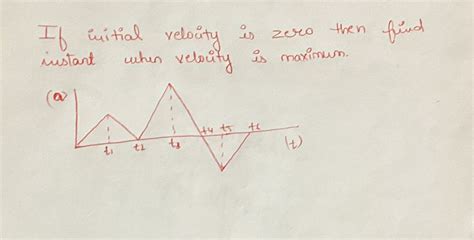 If initial velocity is zero then find
instant when velocity is maximum.
(a)
t1 t2 t3 t4 t5 t6 (t)